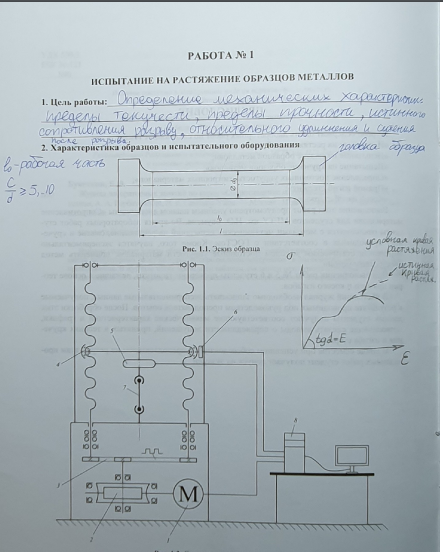 РАБОТА № 1
ИСПЫТАНИЕ НА РАСТЯЖЕНИЕ ОБРАЗЦОВ МЕТАЛЛОВ
1. Цель работы: Определение механических характеристик
пределы текучести, пределы прочности, истинного
сопротивления разрыву, относительного удлинения и сужения
после разрыва
2. Характеристика образцов и испытательного оборудования
головка образца
l₀ - рабочая часть
≥ 5, 10
l₀
l
Рис. 1.1. Эскиз образца
условная кривая
растяжения
истинная
кривая
σ
tgα=E
ε
5
6
4
7
8
3
M
2
1